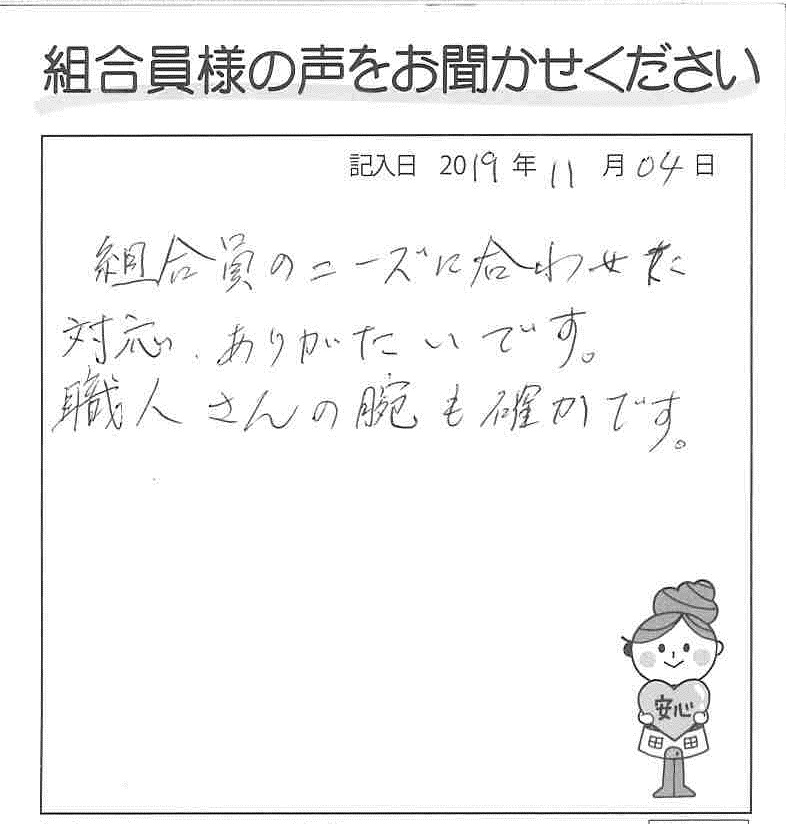 組合員様の声をお聞かせください
記入日 2019年11月04日
組合員のニーズに合わせた
対応、ありがたいです。
職人さんの腕も確かです。
安心